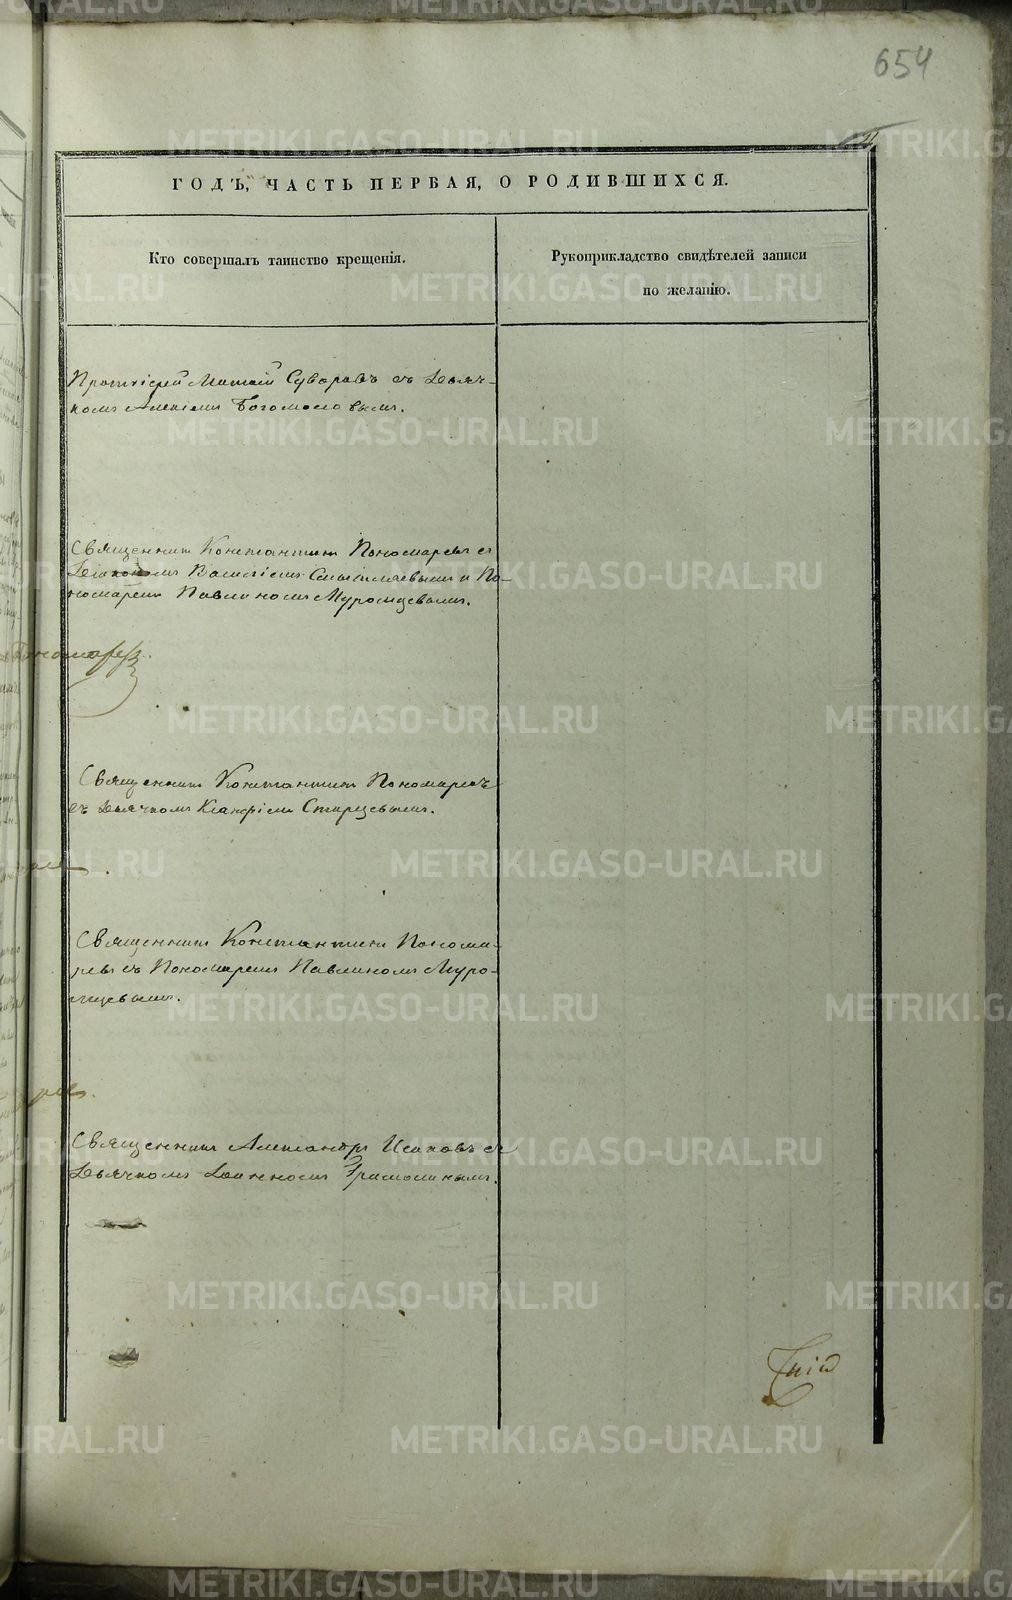 654
ГОДЪ, ЧАСТЬ ПЕРВАЯ, О РОДИВШИХСЯ.
Кто совершалъ таинство крещенія.
Рукоприкладство свидѣтелей записи
по желанію.
Протоіерей Матѳій Суворовъ съ Дьяч-
комъ Алексіемъ Богомоловымъ.
Священникъ Константинъ Пономаревъ съ
Діакономъ Василіемъ Смышляевымъ и По-
номаремъ Павлиномъ Муромцевымъ.
Священникъ Константинъ Пономаревъ
съ Дьячкомъ Старцевымъ.
Священникъ Константинъ Понома-
ревъ съ Пономаремъ Павлиномъ Муро-
мцевымъ.
Священникъ Александръ Исаковъ съ
Дьячкомъ Іоанномъ
METRIKI.GASO-URAL.RU